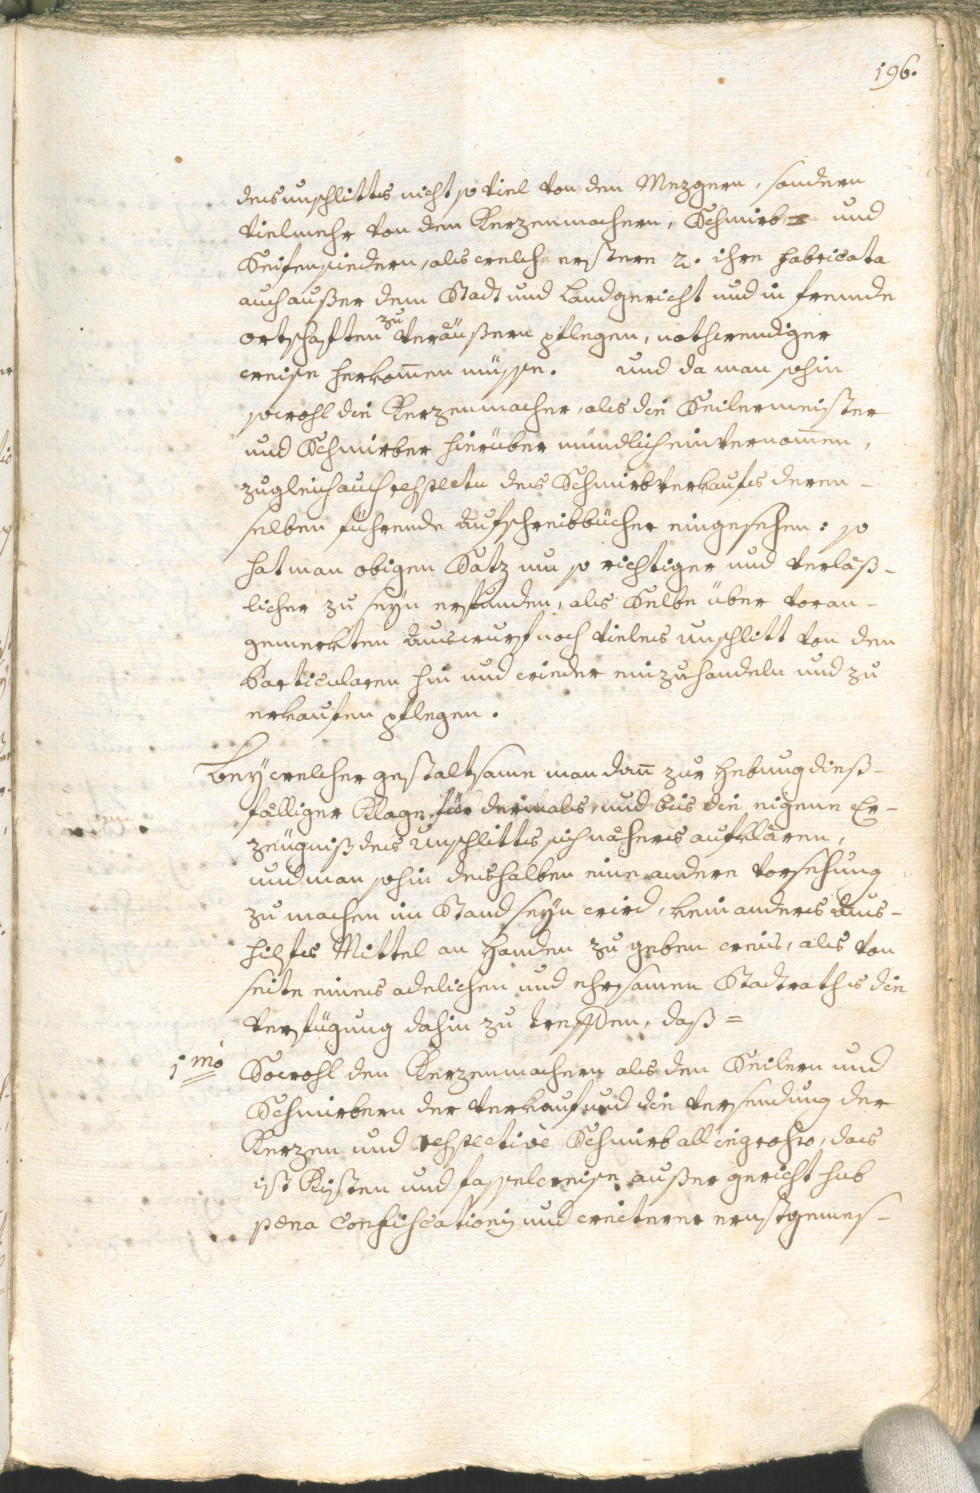 196.
des unschlittes nicht so viel von den Mezgern, sondern
vielmehr von den Kerzenmachern, Schmirb= und
Seifensiedern, als welche erstere 2. ihre fabricata
auch außer dem Stadt und Landgericht und in fremde
ortschaften zu veräußern pflegen, nothwendiger
weise herkomen müsse. Und da man sohin
sowohl die Kerzenmacher, als die Seilermeister
und Schmirber hierüber mündlich einvernomen,
zugleich auch respectu des Schmirbverkaufes deren-
selben führende Aufschreibbücher eingesehen: so
hat man obigen Satz um so richtiger und verläß-
licher zu seyn erfunden, als Selbe über voran-
gemerkten Auswurf noch vieles unschlitt von den
Particularen hin und wieder einzuhandeln und zu
erkaufen pflegen.
Bey welcher gestaltsame man dan zur Hebung dieß-
fälliger Klage für dermals, und bis die eigene Er-
zeügniß des Unschlittes sich näheres aufklären,
und man sohin deshalben eine andere Vorsehung
zu machen im Stand seyn wird, kein anderes Aus-
hilfs Mittel an Handen zu geben weis, als von
seite eines adelichen und ehrsamen Stadtraths die
Verfügung dahin zu treffen, daß=
1mo Sowohl den Kerzenmachern als den Seilern und
Schmirbern der Verkauf und die Versendung der
Kerzen und respective Schmirb all' ingrosso, das
ist Kisten und fasselweise außer gericht sub
poena Confiscationis und weiterer ernstgemes-